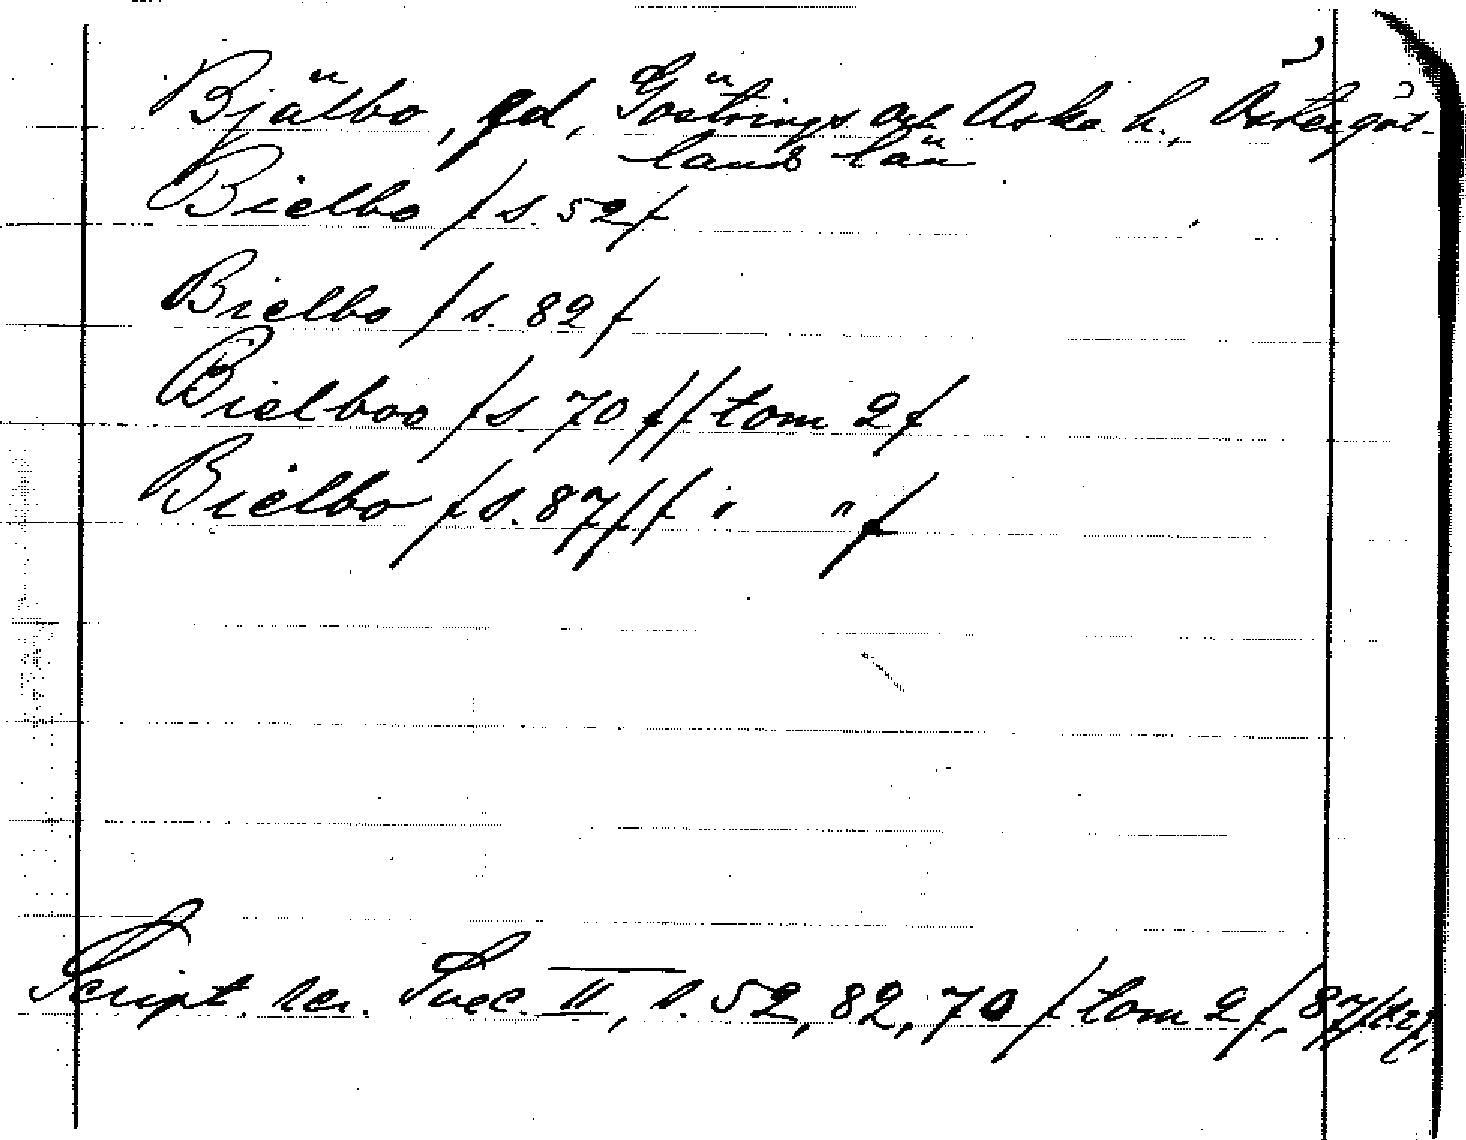 Bjälbo, gd, Göstrings och Aske h., Östergöt-
lands län
Bielbo / s. 52 /
Bielbo / s. 82 /
Bielboo / s. 70 / / tom 2 /
Bielbo / s. 87 / / " " /
Script. rer. Svec. II, s. 52, 82, 70 / tom 2 /, 87 /